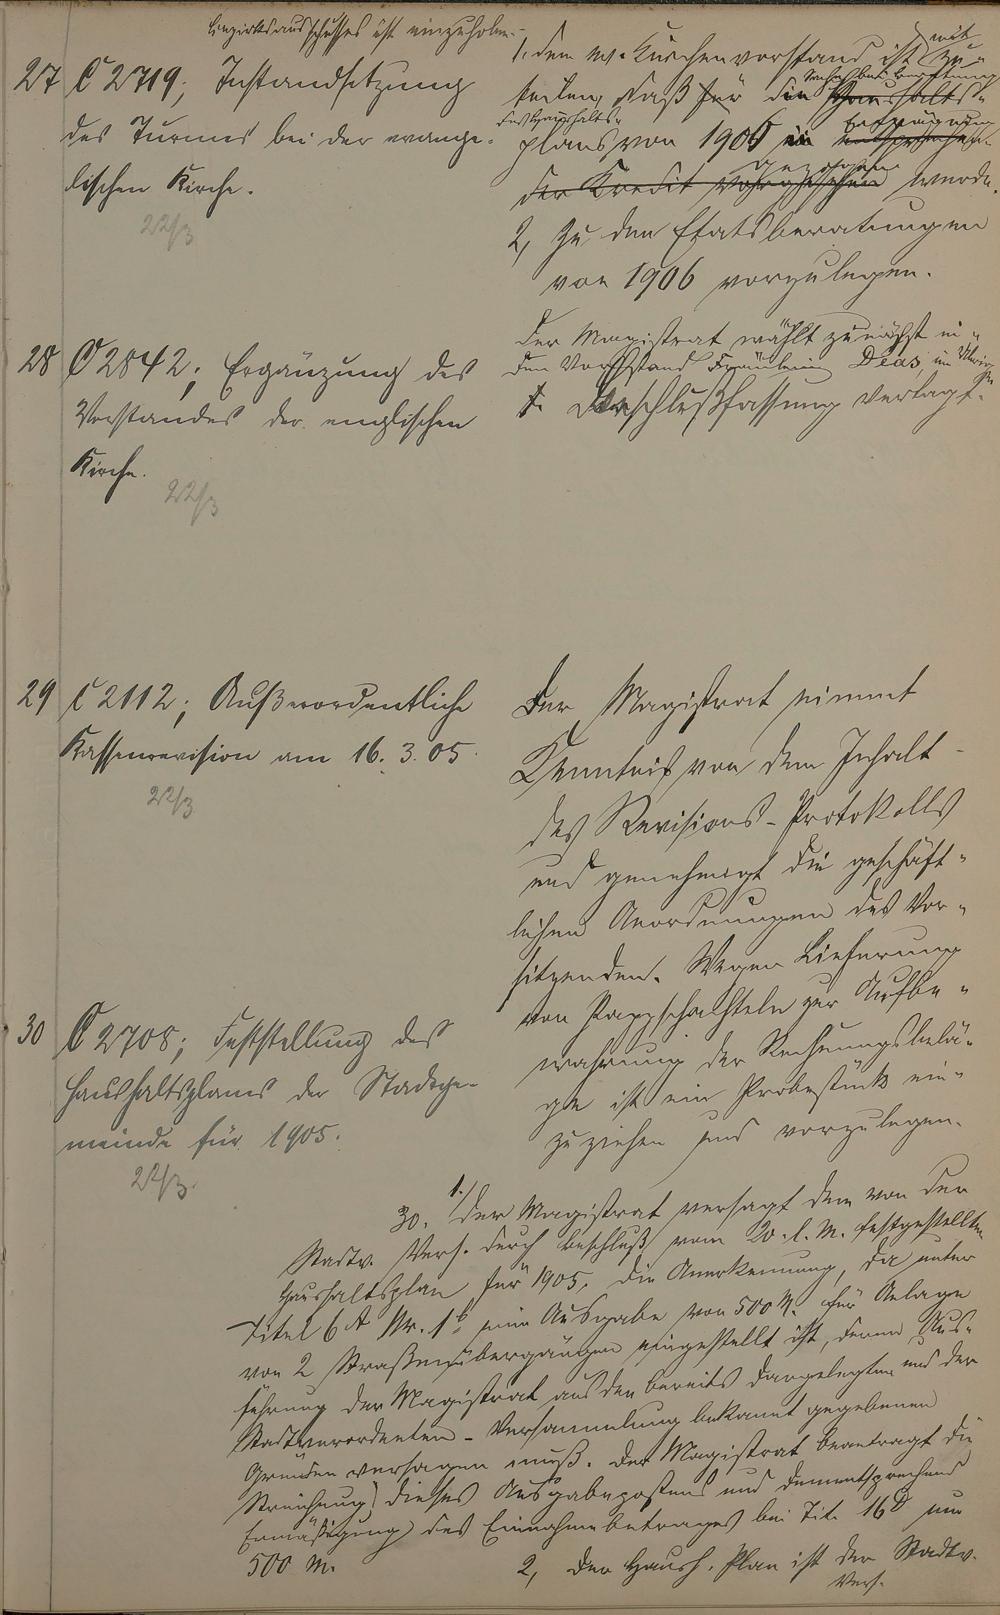 Bezirksausschusses ist einzuholen.
27 C 2719; Instandsetzung
des Turmes bei der evange-
lischen Kirche.
22/3
1, dem ev. Kirchenvorstand ist mit zu-
teilen, daß für die Haushalts-
des Haushalts-
plans von 1905 in Erwägung entsprechen-
der Kredit vorgesehen gezogen werde.
2, Zu den Etatsberatungen
von 1906 vorzulegen.
28 C 2842; Ergänzung des
Vorstandes der englischen
Kirche.
22/3
Der Magistrat wählt zunächst in
den Vorstand Fräulein Dias, im Übrigen
Beschlußfassung vertagt.
29 C 2112; Außerordentliche
Kassenrevision am 16.3.05.
22/3
Der Magistrat nimmt
Kenntnis von dem Inhalt
des Revisions-Protokolls
und genehmigt die geschäft-
lichen Anordnungen des Vor-
sitzenden. Wegen Lieferung
von Pappschachteln zur Aufbe-
wahrung der Rechnungsbelä-
ge ist ein Probestück ein-
zuziehen und vorzulegen.
30 C 2708; Feststellung des
Haushaltsplans der Stadtge-
meinde für 1905.
22/3.
30. 1./ Der Magistrat versagt dem von der
Stadtv. Vers. durch Beschluß vom 20. l. M. festgestellten
Haushaltsplan für 1905, die Anerkennung, da unter
Titel 6 A Nr. 1b eine Ausgabe von 500 M. für Anlage
von 2 Straßenübergängen eingestellt ist, deren Aus-
führung der Magistrat aus den bereits dargelegten und der
Stadtverordneten-Versammlung bekannt gegebenen
Gründen versagen muß. Der Magistrat beantragt die
Streichung dieses Ausgabepostens und dementsprechend
Ermäßigung des Einnahmebetrages bei Tit. 16 D um
500 M.
2, Der Haush. Plan ist der Stadtv.
Vers.